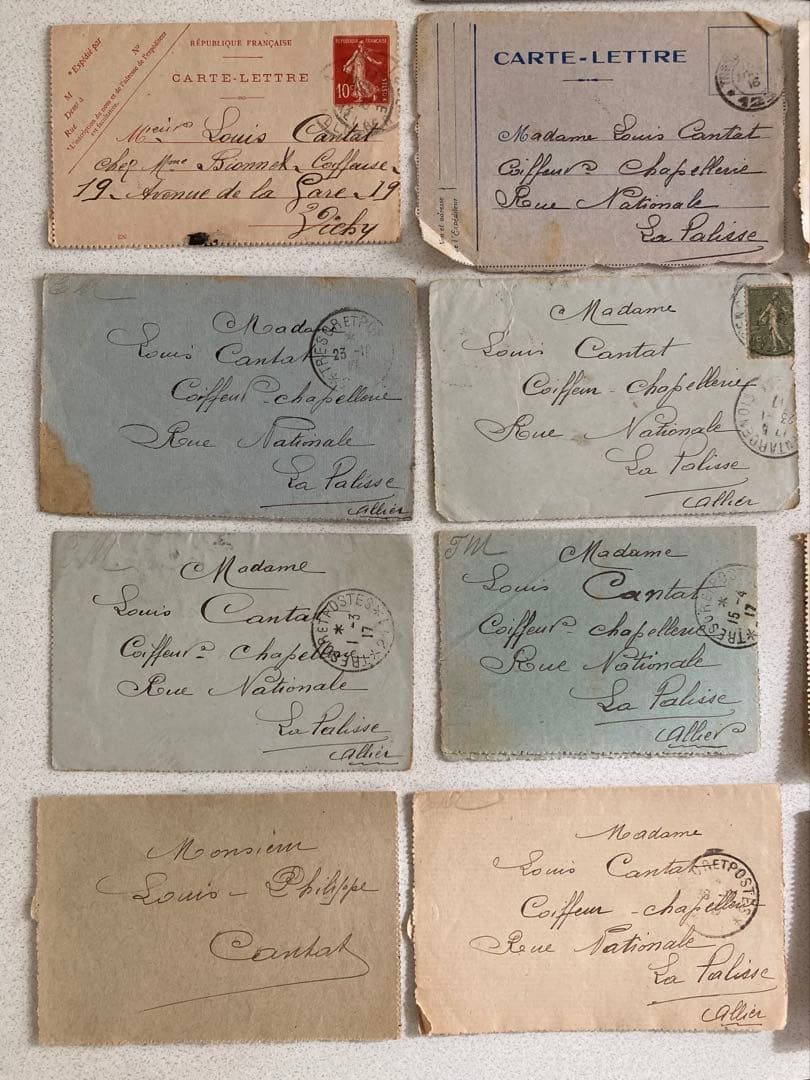 RÉPUBLIQUE FRANÇAISE
CARTE-LETTRE
*Expédié par
M
Demt à
Rue
N°
*L'inscription du nom et de l'adresse de l'expéditeur
est facultative.
RÉPUBLIQUE FRANÇAISE
10c
POSTES
Louis Cantat
chez Mme Coiffeuse
19 Avenue de la Gare 19
Vichy
CARTE-LETTRE
Madame Louis Cantat
Coiffeur Chapellerie
Rue Nationale
La Palisse
Nom et adresse
de l'Expéditeur
Madame
Louis Cantat
Coiffeur chapellerie
Rue Nationale
La Palisse
Allier
TRESOR ET POSTES
23
Madame
Louis Cantat
Coiffeur chapellerie
Rue Nationale
La Palisse
Allier
FM
Madame
Louis Cantat
Coiffeur chapellerie
Rue Nationale
La Palisse
Allier
TRESOR ET POSTES
1 -3
17
FM
Madame
Louis Cantat
Coiffeur chapellerie
Rue Nationale
La Palisse
Allier
TRESOR ET POSTES
15 -4
17
Monsieur
Louis-Philippe
Cantat
Madame
Louis Cantat
Coiffeur chapellerie
Rue Nationale
La Palisse
Allier